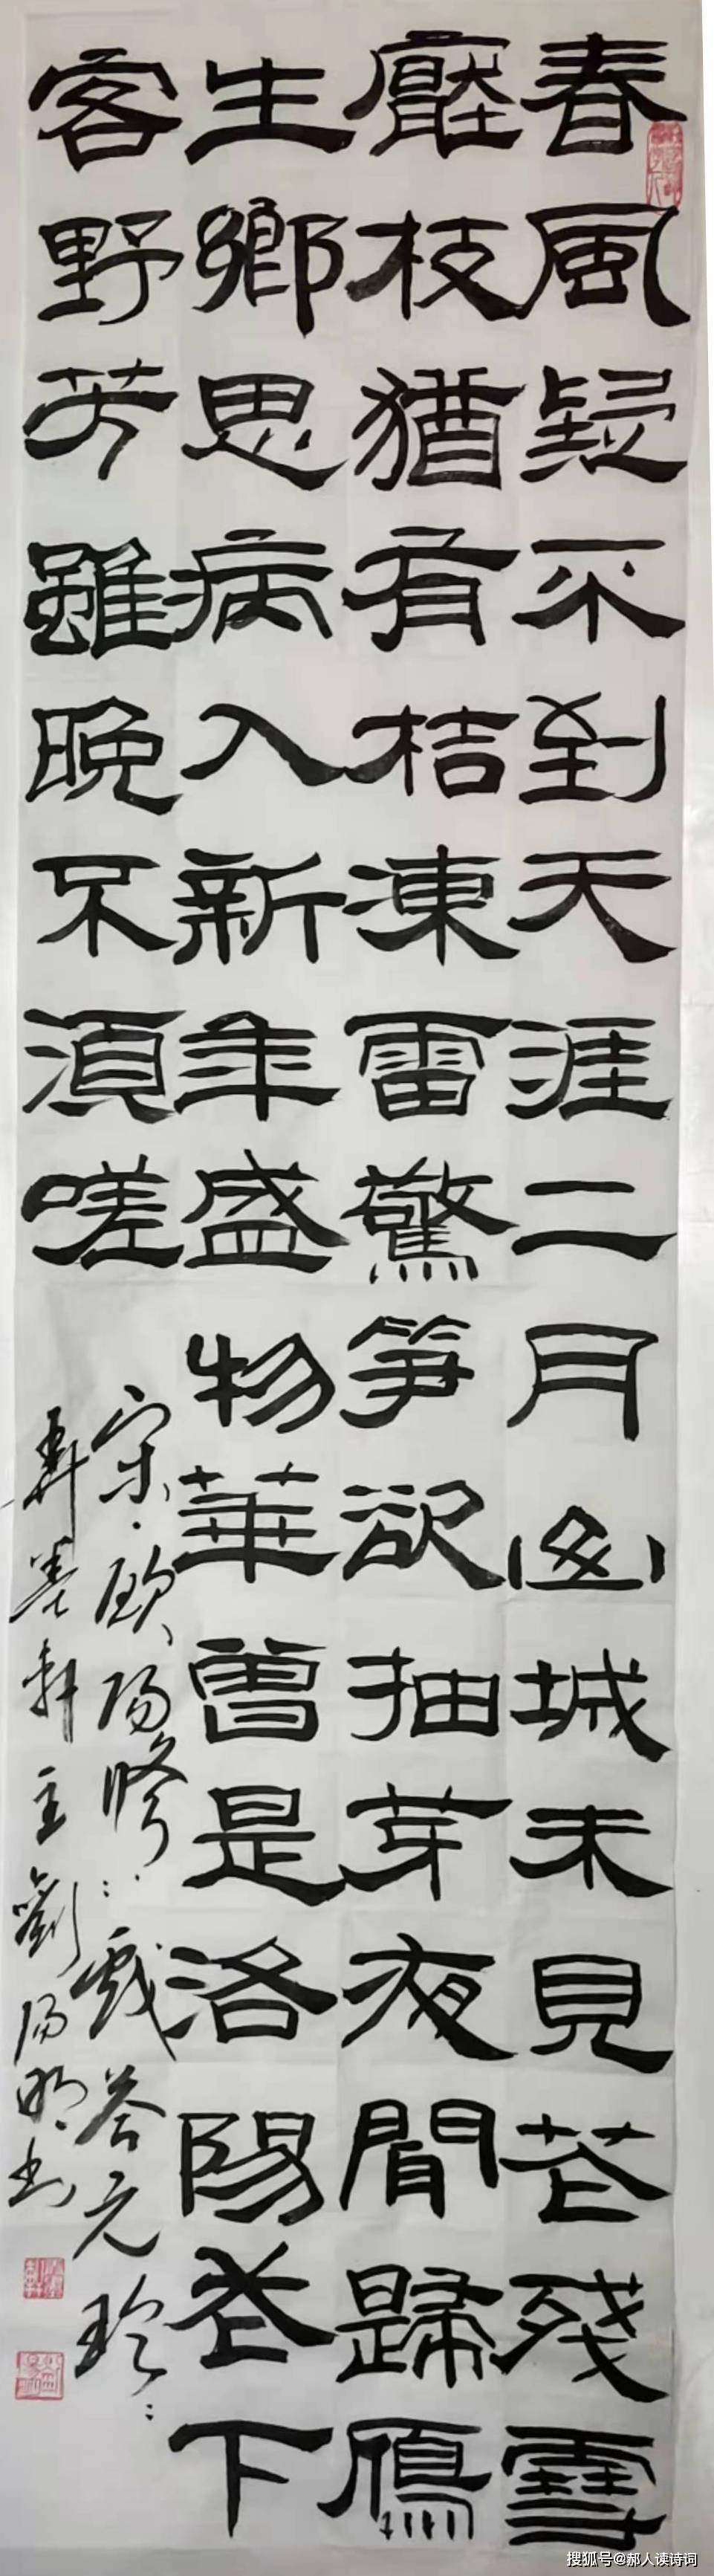 春風疑不到天涯二月山城未見花殘雪
壓枝猶有桔凍雷驚笋欲抽芽夜聞歸鴈
生鄉思病入新年盛物華曾是洛陽花下
客野芳雖晚不須嗟
宋·歐陽修：戲答元珍：
弄墨軒主劉陽明书
搜狐号@郝人读诗词